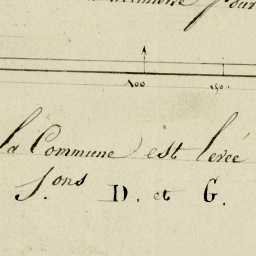 pour
100 150
la Commune) est levée
S.ons D. et G.